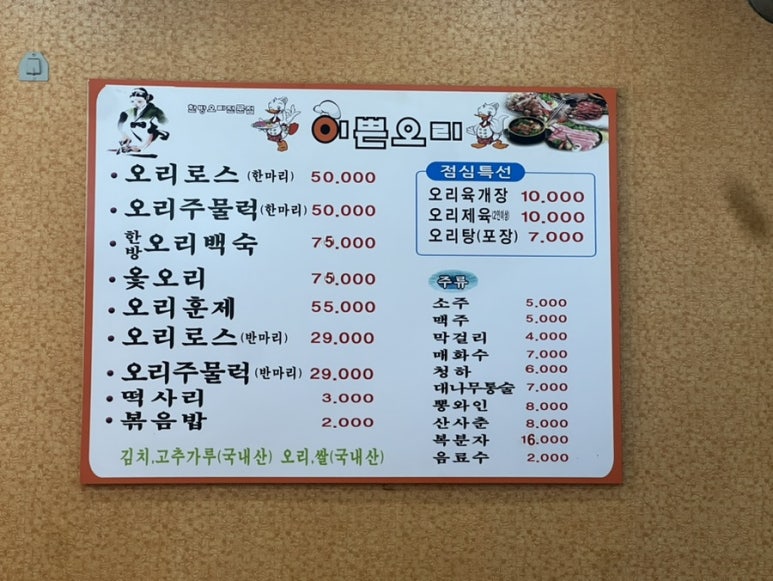 한방오리전문점
이쁜오리
오리로스 (한마리) 50.000
오리주물럭 (한마리) 50.000
한방 오리백숙 75.000
옻오리 75.000
오리훈제 55.000
오리로스 (반마리) 29.000
오리주물럭 (반마리) 29.000
떡사리 3.000
볶음밥 2.000
김치,고추가루(국내산) 오리,쌀(국내산)
점심특선
오리육개장 10.000
오리제육(2인이상) 10.000
오리탕(포장) 7.000
주류
소주 5.000
맥주 5.000
막걸리 4.000
매화수 7.000
청하 6.000
대나무통술 7.000
뽕와인 8.000
산사춘 8.000
복분자 16.000
음료수 2.000